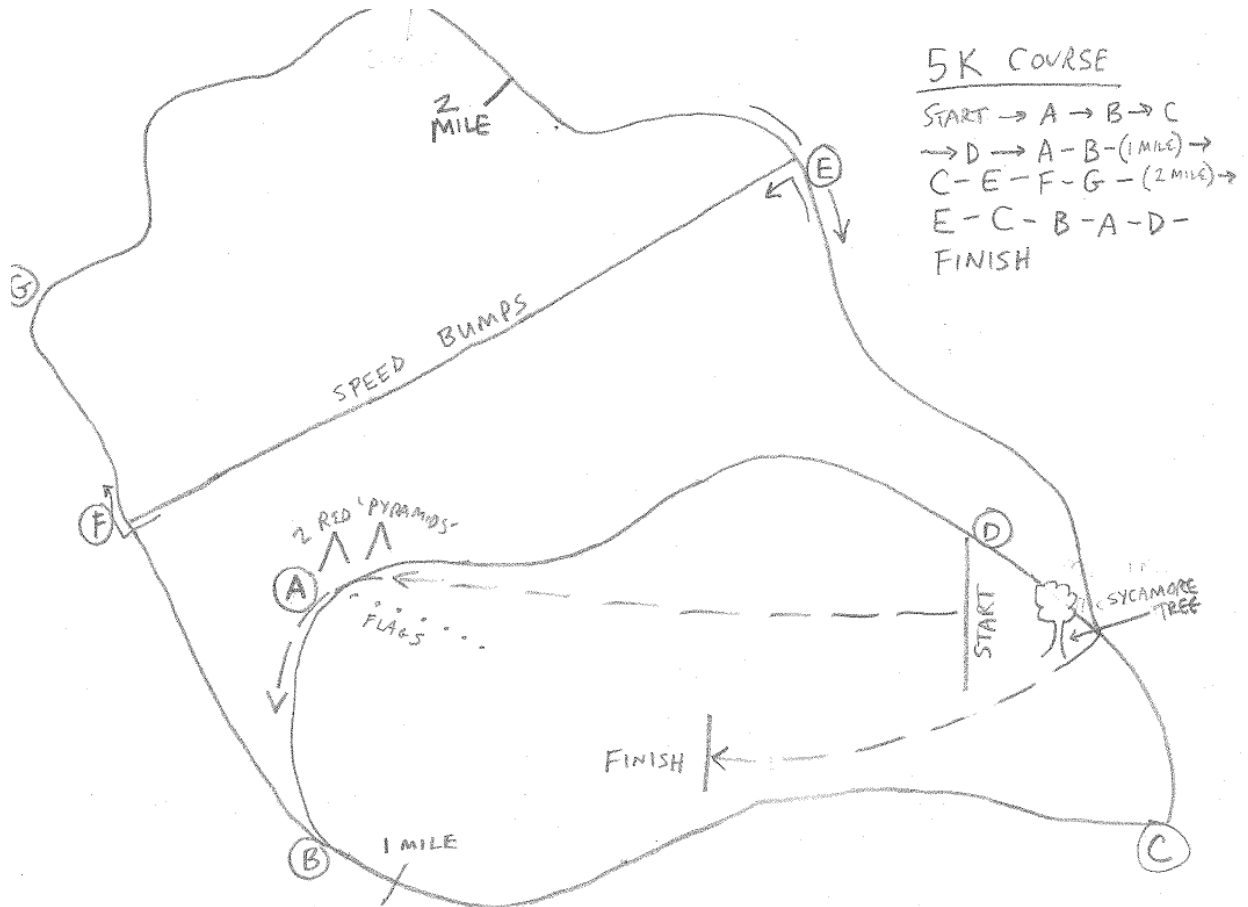 5K COURSE
START → A → B → C
→ D → A - B - (1 MILE) →
C - E - F - G - (2 MILE) →
E - C - B - A - D -
FINISH
2
MILE
E
G
SPEED BUMPS
F
2 RED 'PYRAMIDS-
A
FLAGS
D
START
SYCAMORE
TREE
FINISH
B
1 MILE
C